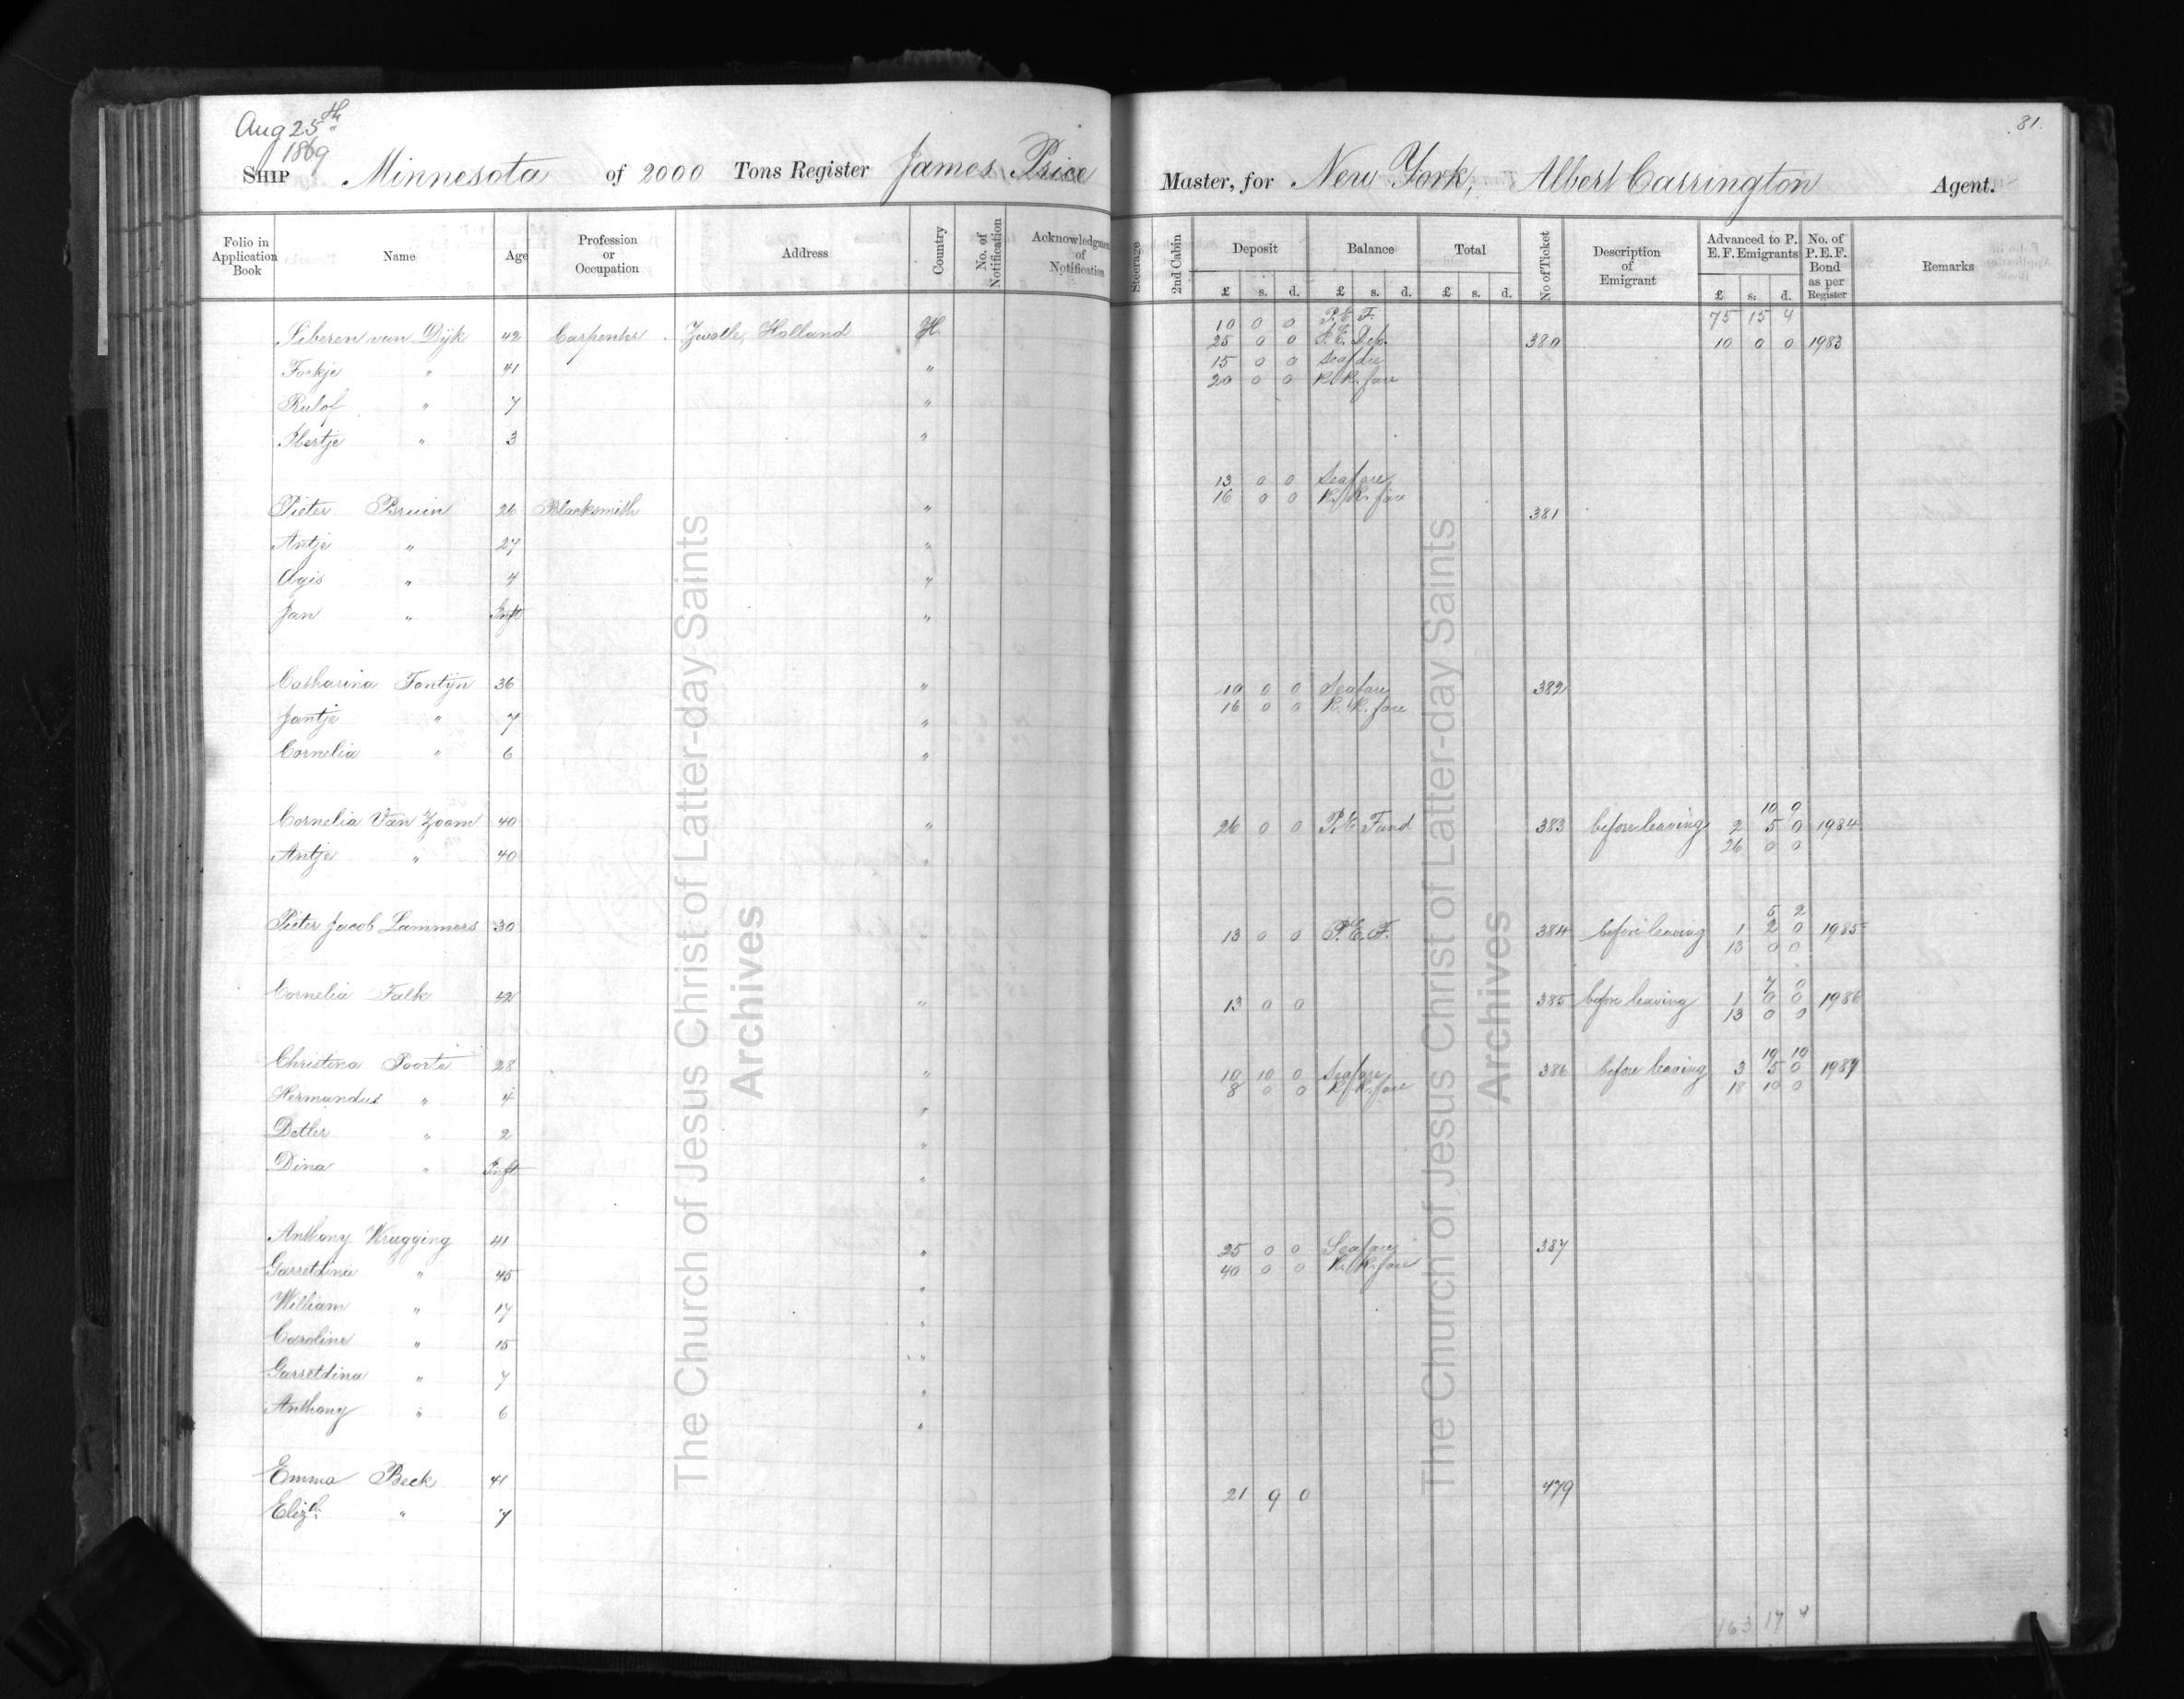 Aug 25th
1869
81.
SHIP Minnesota of 2000 Tons Register James Price Master, for New York, Albert Carrington Agent.
Folio in Application Book Name Age Profession or Occupation Address Country No. of Notification Acknowledgment of Notification Steerage 2nd Cabin Deposit Balance Total No of Ticket Description of Emigrant Advanced to P. E. F. Emigrants No. of P.E.F. Bond as per Register Remarks
£ s. d. £ s. d. £ s. d. £ s. d.
10 0 0 P. E. F. 75 15 4
Siberen van Dijk 42 Carpenter Zwolle, Holland H. 25 0 0 P. E. Dep. 380 10 0 0 1983
15 0 0 Seafare
Fockje " 41 " 20 0 0 R. R. fare
Rulof " 7 "
Ibertje " 3 "
13 0 0 Seafare
16 0 0 R. R. fare
Pieter Bruin 26 Blacksmith " 381
Antje " 27 "
Agis " 4 "
Jan " Inft "
Catharina Fontijn 36 " 10 0 0 Seafare 382
16 0 0 R. R. fare
Jantje " 7 "
Cornelia " 6 "
10 0
Cornelia Van Zoom 40 " 26 0 0 P. E. Fund 383 before leaving 2 5 0 1984
26 0 0
Antje " 40 "
5 2
Pieter Jacob Lammers 30 " 13 0 0 P. E. F. 384 before leaving 1 2 0 1985
13 0 0
7 0
Cornelia Falk 42 " 13 0 0 385 before leaving 1 0 0 1986
13 0 0
19 10
Christina Poorte 28 " 10 10 0 Seafare 386 before leaving 3 5 0 1987
8 0 0 R. R. fare 18 10 0
Hermundus " 4 "
Detler " 2 "
Dina " Inft "
Anthony Wrugging 41 " 25 0 0 Seafare 387
40 0 0 R. R. fare
Garretdina " 45 "
William " 17 "
Caroline " 15 "
Garretdina " 7 "
Anthony " 6 "
Emma Beck 41 21 9 0 479
Elizth " 7
163 17 4
The Church of Jesus Christ of Latter-day Saints
Archives
The Church of Jesus Christ of Latter-day Saints
Archives